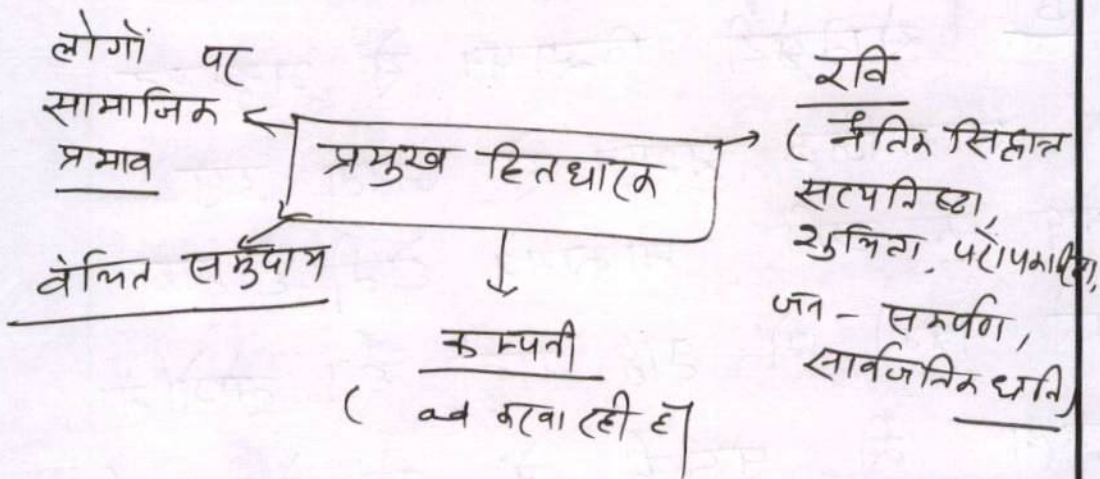 लोगों पर
सामाजिक
प्रभाव
प्रमुख हितधारक
रवि
( नैतिक सिद्धान्त
सत्यनिष्ठा,
शुचिता, परोपकारिता,
जन - समर्पण,
सार्वजनिक
वंचित समुदाय
कम्पनी
( ad करवा रही है )